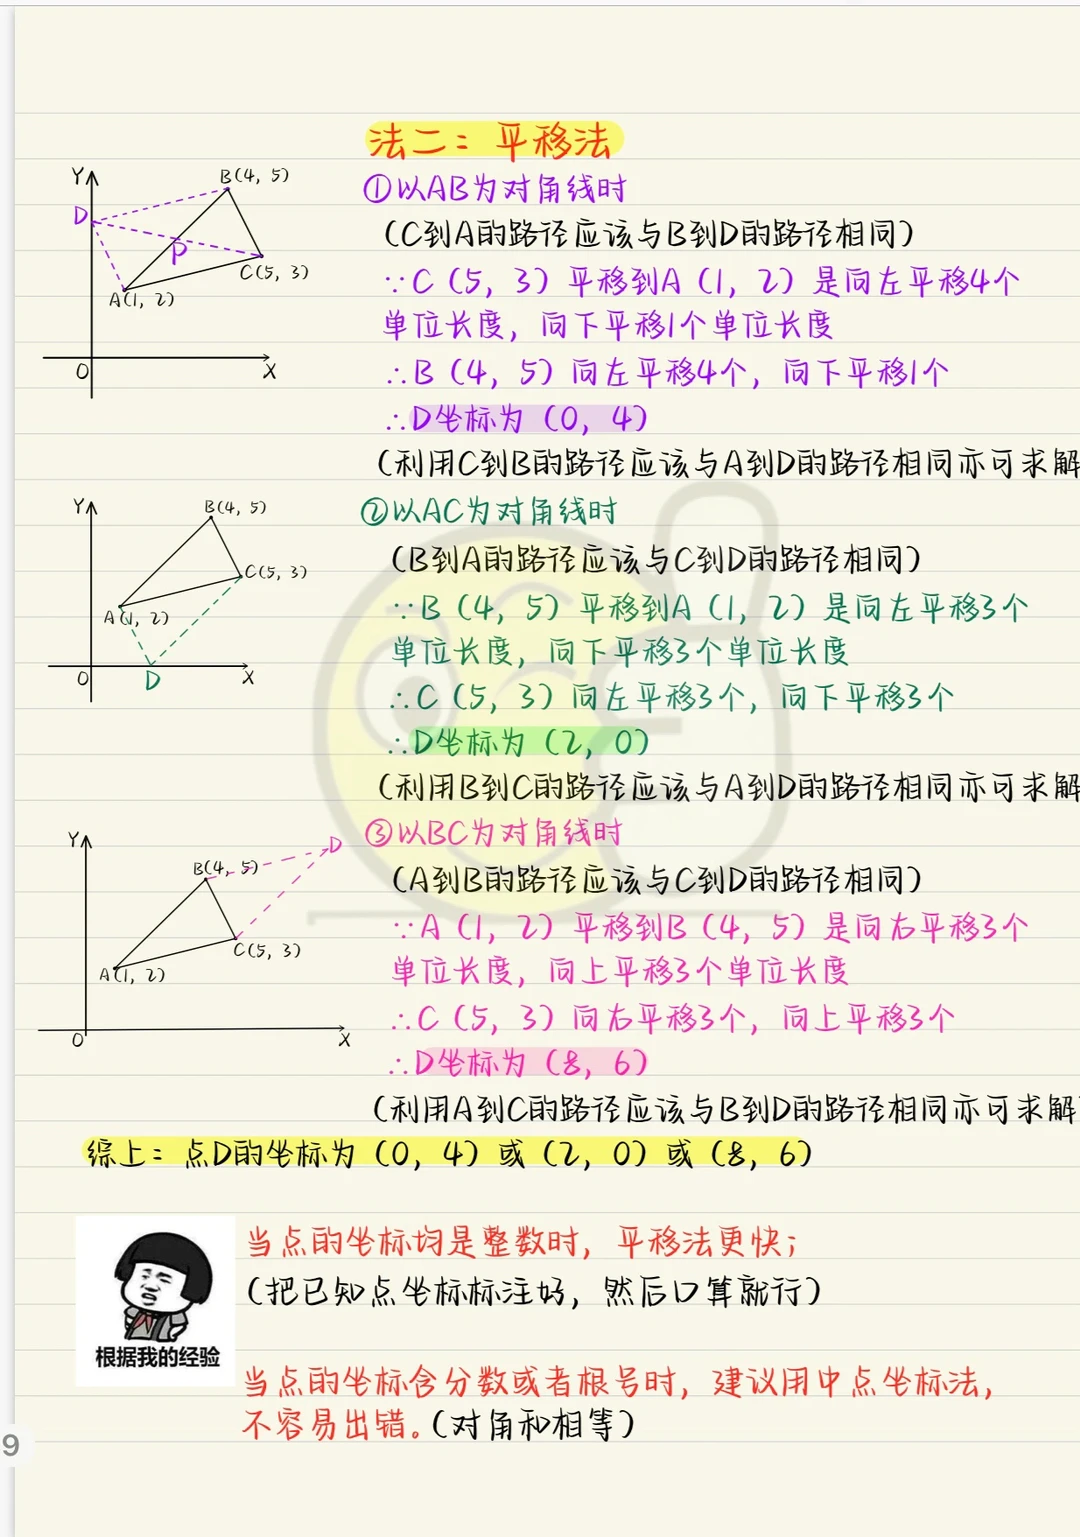 法二：平移法
Y
B(4, 5)
D
P
C(5, 3)
A(1, 2)
O
X
①以AB为对角线时
（C到A的路径应该与B到D的路径相同）
∵C（5，3）平移到A（1，2）是向左平移4个
单位长度，向下平移1个单位长度
∴B（4，5）向左平移4个，向下平移1个
∴D坐标为（0，4）
（利用C到B的路径应该与A到D的路径相同亦可求解
Y
B(4, 5)
C(5, 3)
A(1, 2)
O
D
X
②以AC为对角线时
（B到A的路径应该与C到D的路径相同）
∵B（4，5）平移到A（1，2）是向左平移3个
单位长度，向下平移3个单位长度
∴C（5，3）向左平移3个，向下平移3个
∴D坐标为（2，0）
（利用B到C的路径应该与A到D的路径相同亦可求解
Y
D
B(4, 5)
C(5, 3)
A(1, 2)
O
X
③以BC为对角线时
（A到B的路径应该与C到D的路径相同）
∵A（1，2）平移到B（4，5）是向右平移3个
单位长度，向上平移3个单位长度
∴C（5，3）向右平移3个，向上平移3个
∴D坐标为（8，6）
（利用A到C的路径应该与B到D的路径相同亦可求解
综上：点D的坐标为（0，4）或（2，0）或（8，6）
当点的坐标均是整数时，平移法更快；
（把已知点坐标标注好，然后口算就行）
根据我的经验
当点的坐标含分数或者根号时，建议用中点坐标法，
不容易出错。（对角和相等）
9